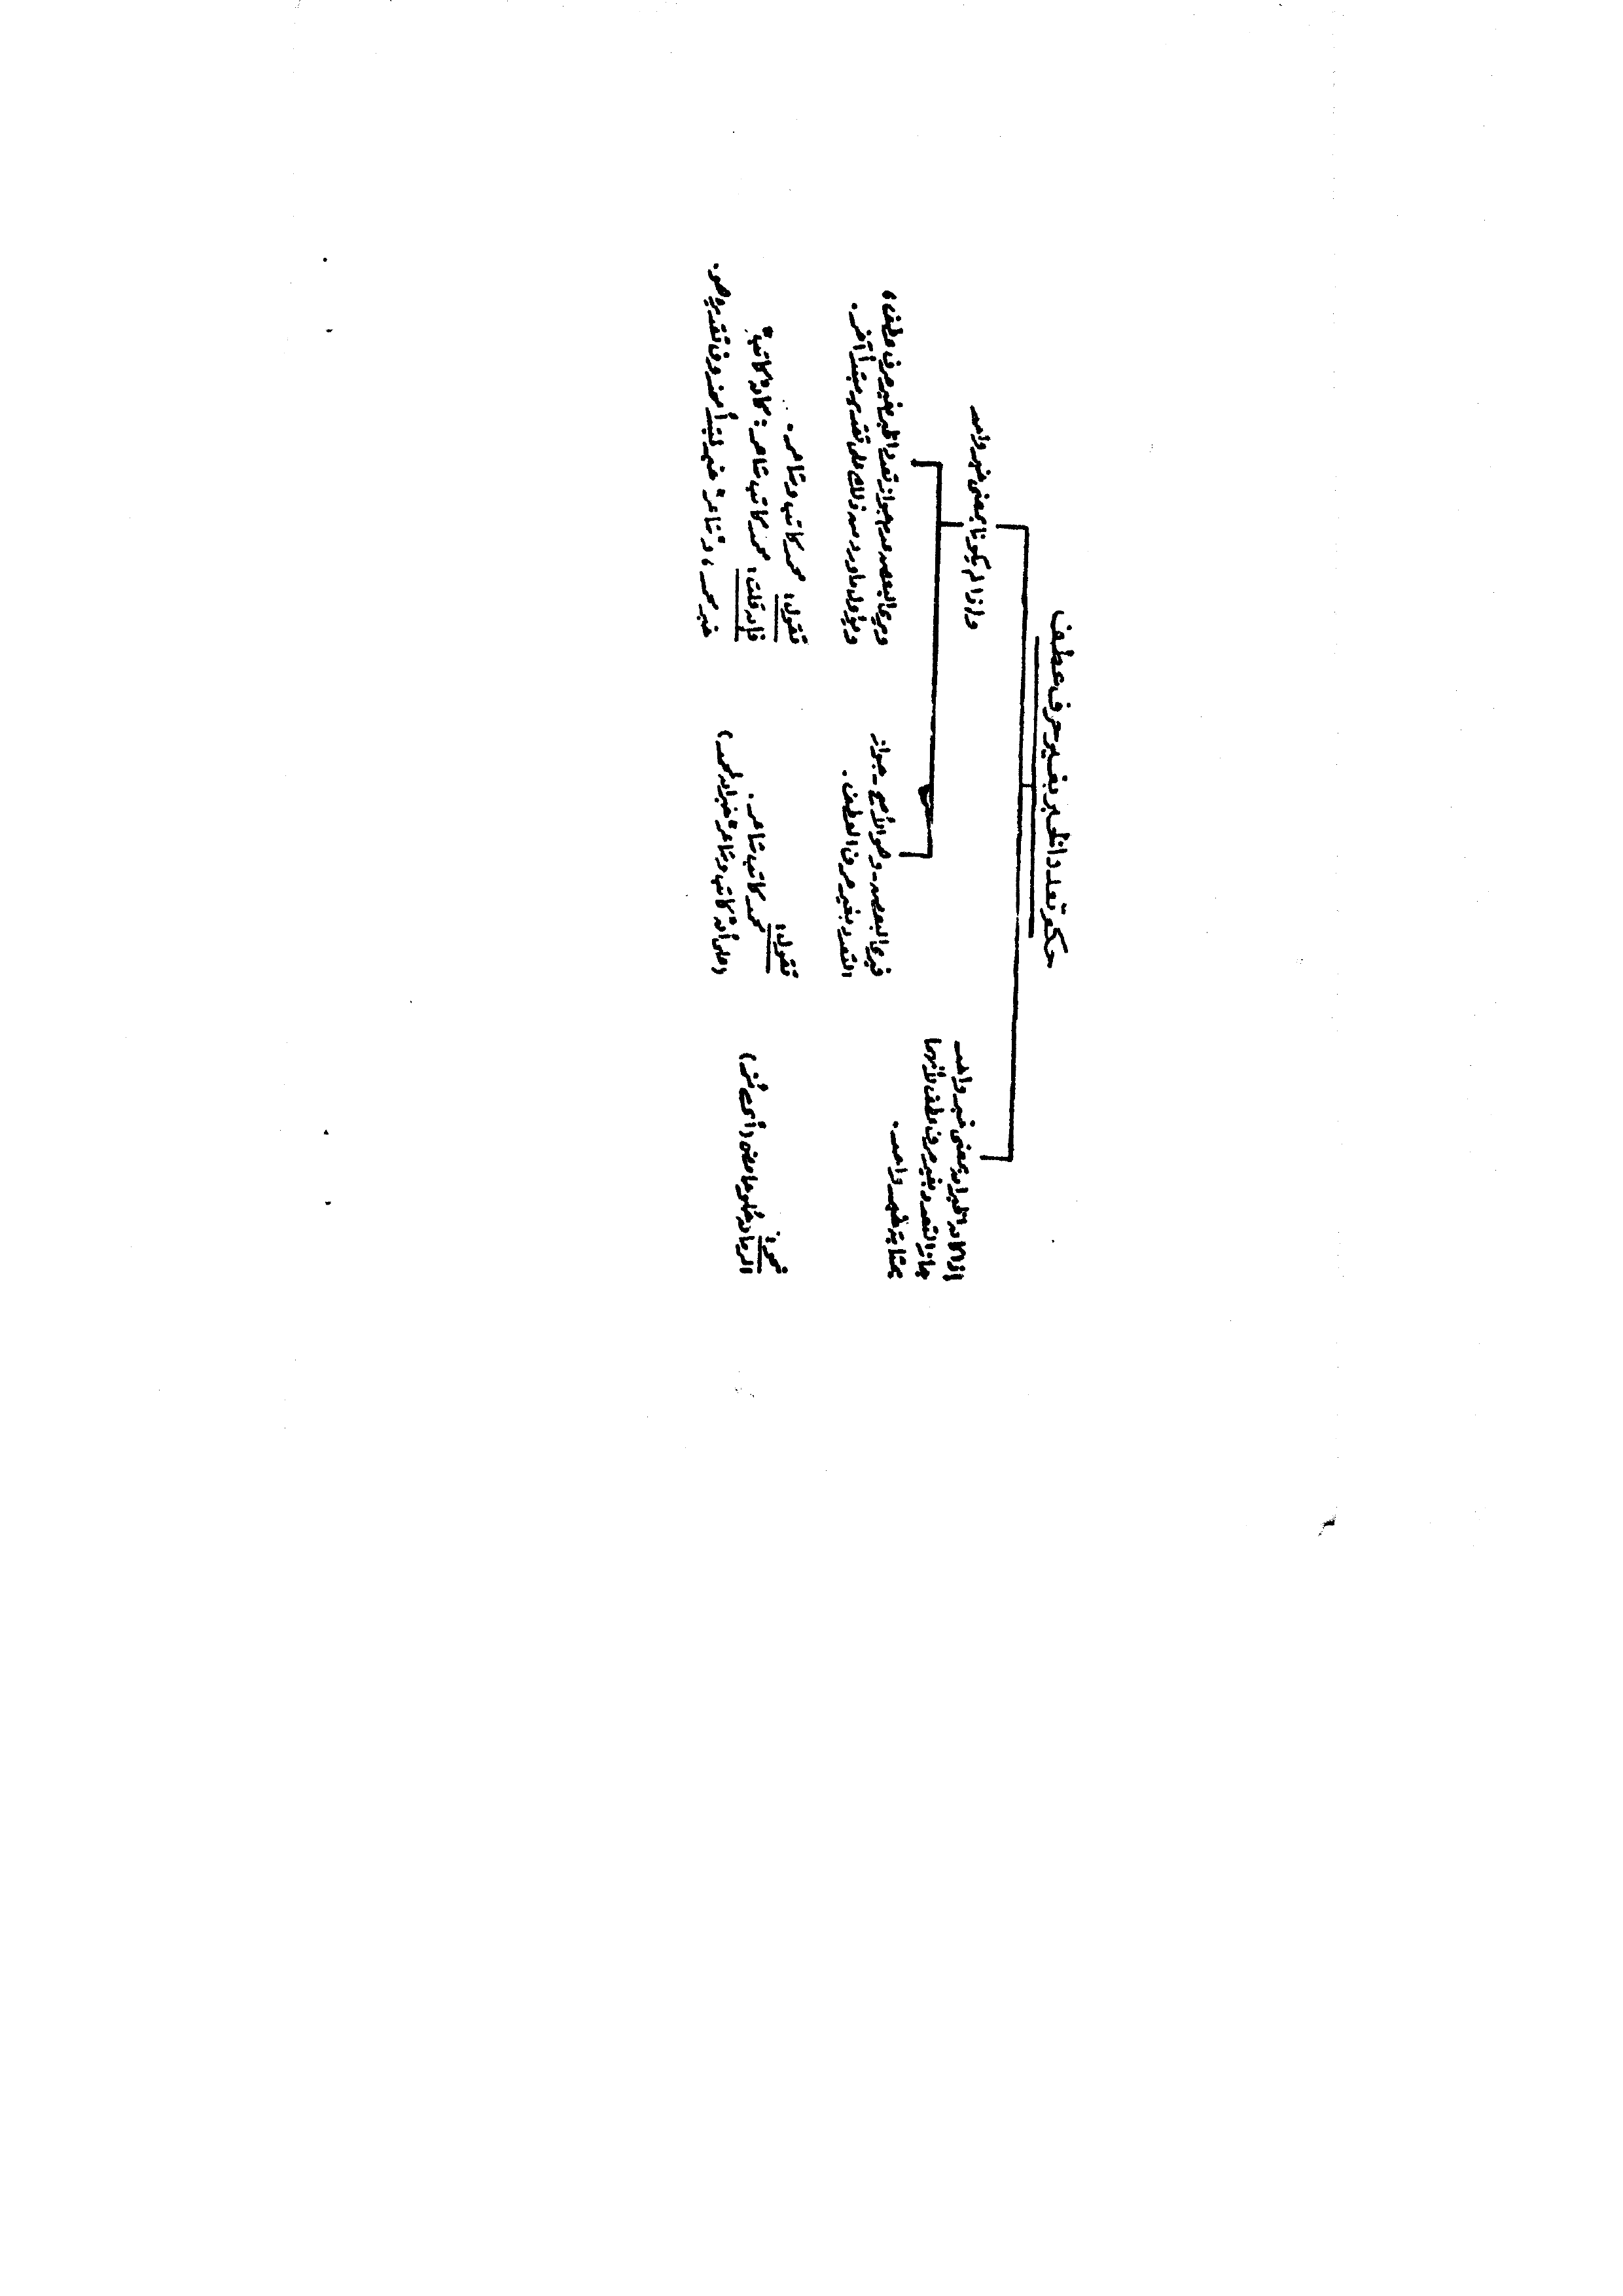 حكم تعدد الخبر بغير حرف عطف
إذا كان الخبران بمعنى خبر واحد
جاز التعدد بغير حرف عطف لأنهما
بمثابة خبر واحد.
نحو:
الرمان حلو حامض (أي مُز)
وإذا لم يكونا بمعنى خبر واحد
فيرى البعض - وهو الأصح - جواز
التعدد بغير حرف العطف.
تقول:
محمد كاتب شاعر.
(على أن كاتب وشاعر خبران لمحمد)
ويرى البعض عدم جواز تعدد الخبر بغير حرف عطف،
ويؤول ما ورد من ذلك على تقدير مبتدأ آخر.
تقول: محمد كاتب وشاعر.
فإن قلت: محمد كاتب شاعر: كان كاتب
خبر محمد، وشاعر خبر لمبتدأ محذوف تقديره هو.